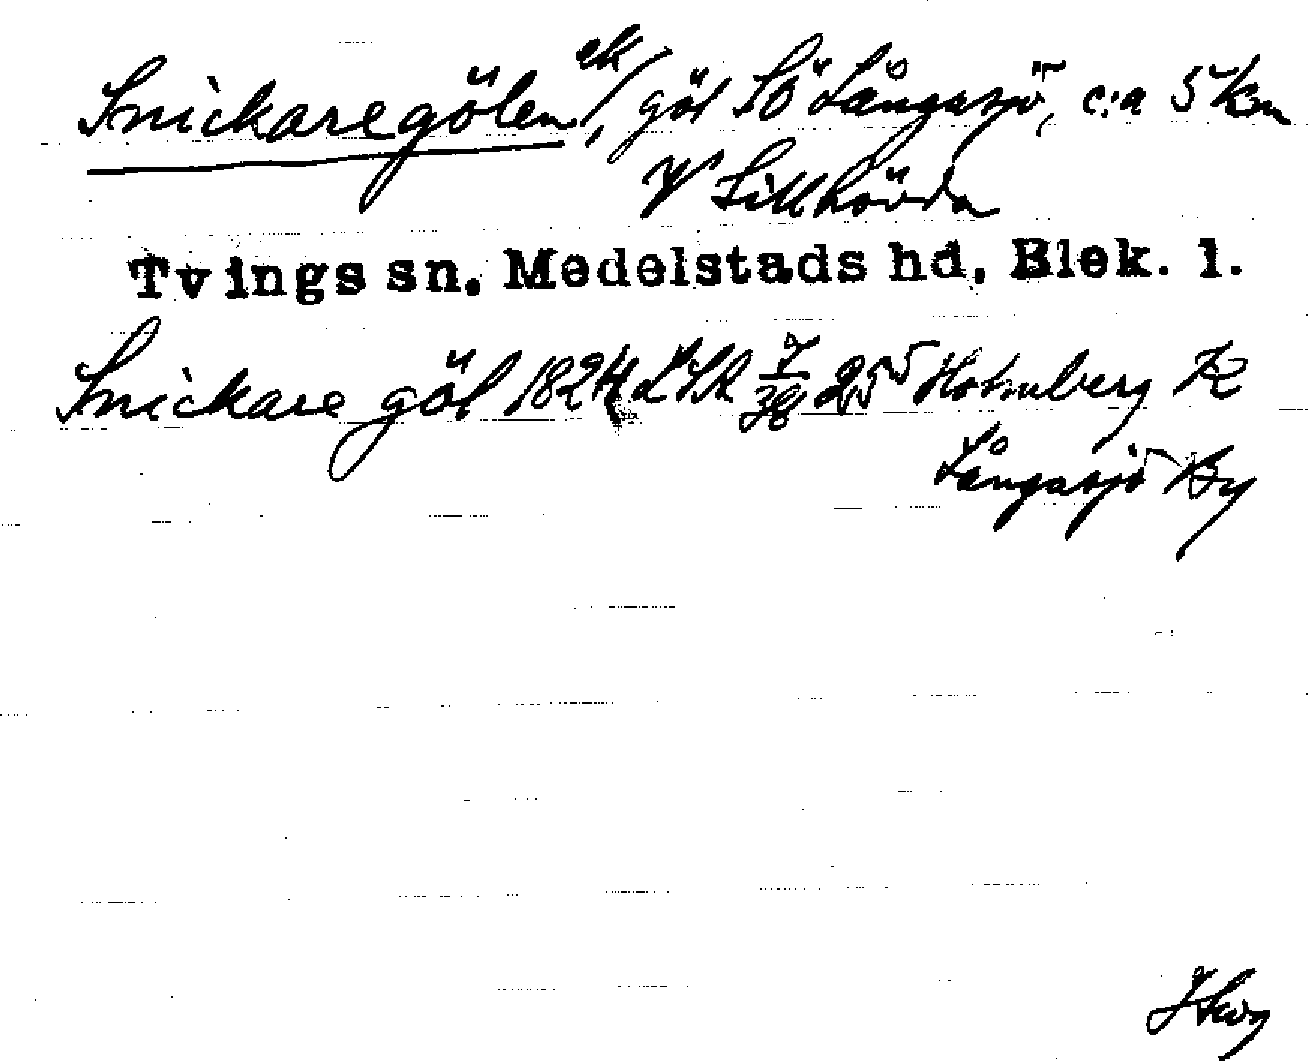 Snickaregölen ek/, göl SÖ Långasjö, c:a 5 km
V Sillhövda
Tvings sn. Medelstads hd, Blek. l.
Snickare göl 1824 LSA 255 Holmberg K
Långasjö By